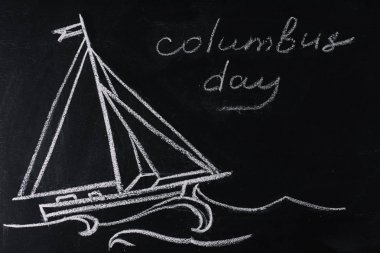 columbus
day